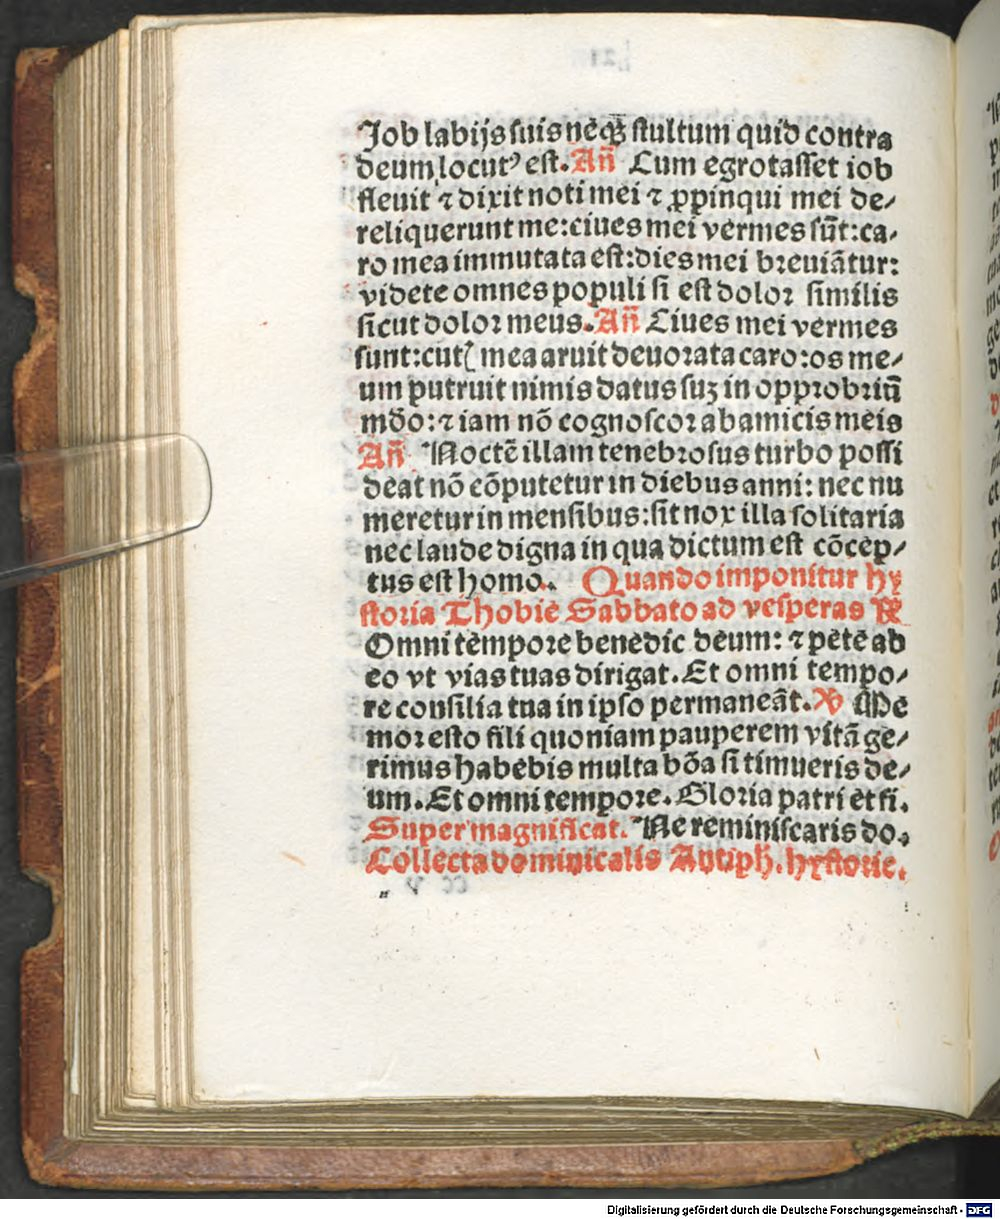 Job labijs suis neqꝫ stultum quid contra
deum locutꝰ est. Añ Cum egrotasset iob
fleuit ⁊ dixit noti mei ⁊ ꝓpinqui mei de⸗
reliquerunt me: ciues mei vermes sũt: ca⸗
ro mea immutata est: dies mei breuiãtur:
videte omnes populi si est dolor similis
sicut dolor meus. Añ Ciues mei vermes
sunt: cutꝭ mea aruit deuorata caro: os me⸗
um putruit nimis datus suꝫ in opprobriũ
mdo: ⁊ iam nõ cognoscor ab amicis meis
Añ Noctẽ illam tenebrosus turbo possi
deat nõ cõputetur in diebus anni: nec nu
meretur in mensibus: sit nox illa solitaria
nec laude digna in qua dictum est cõcep⸗
tus est homo. Quando imponitur hy
storia Thobie Sabbato ad vesperas ℟
Omni tempore benedic deum: ⁊ pete ab
eo vt vias tuas dirigat. Et omni tempo⸗
re consilia tua in ipso permaneãt. ℣ Me
mor esto fili quoniam pauperem vitã ge⸗
rimus habebis multa bõa si timueris de⸗
um. Et omni tempore. Gloria patri et fi.
Super magnificat. Ne reminiscaris do.
Collecta dominicalis Antiph. hystorie.
Digitalisierung gefördert durch die Deutsche Forschungsgemeinschaft - DFG